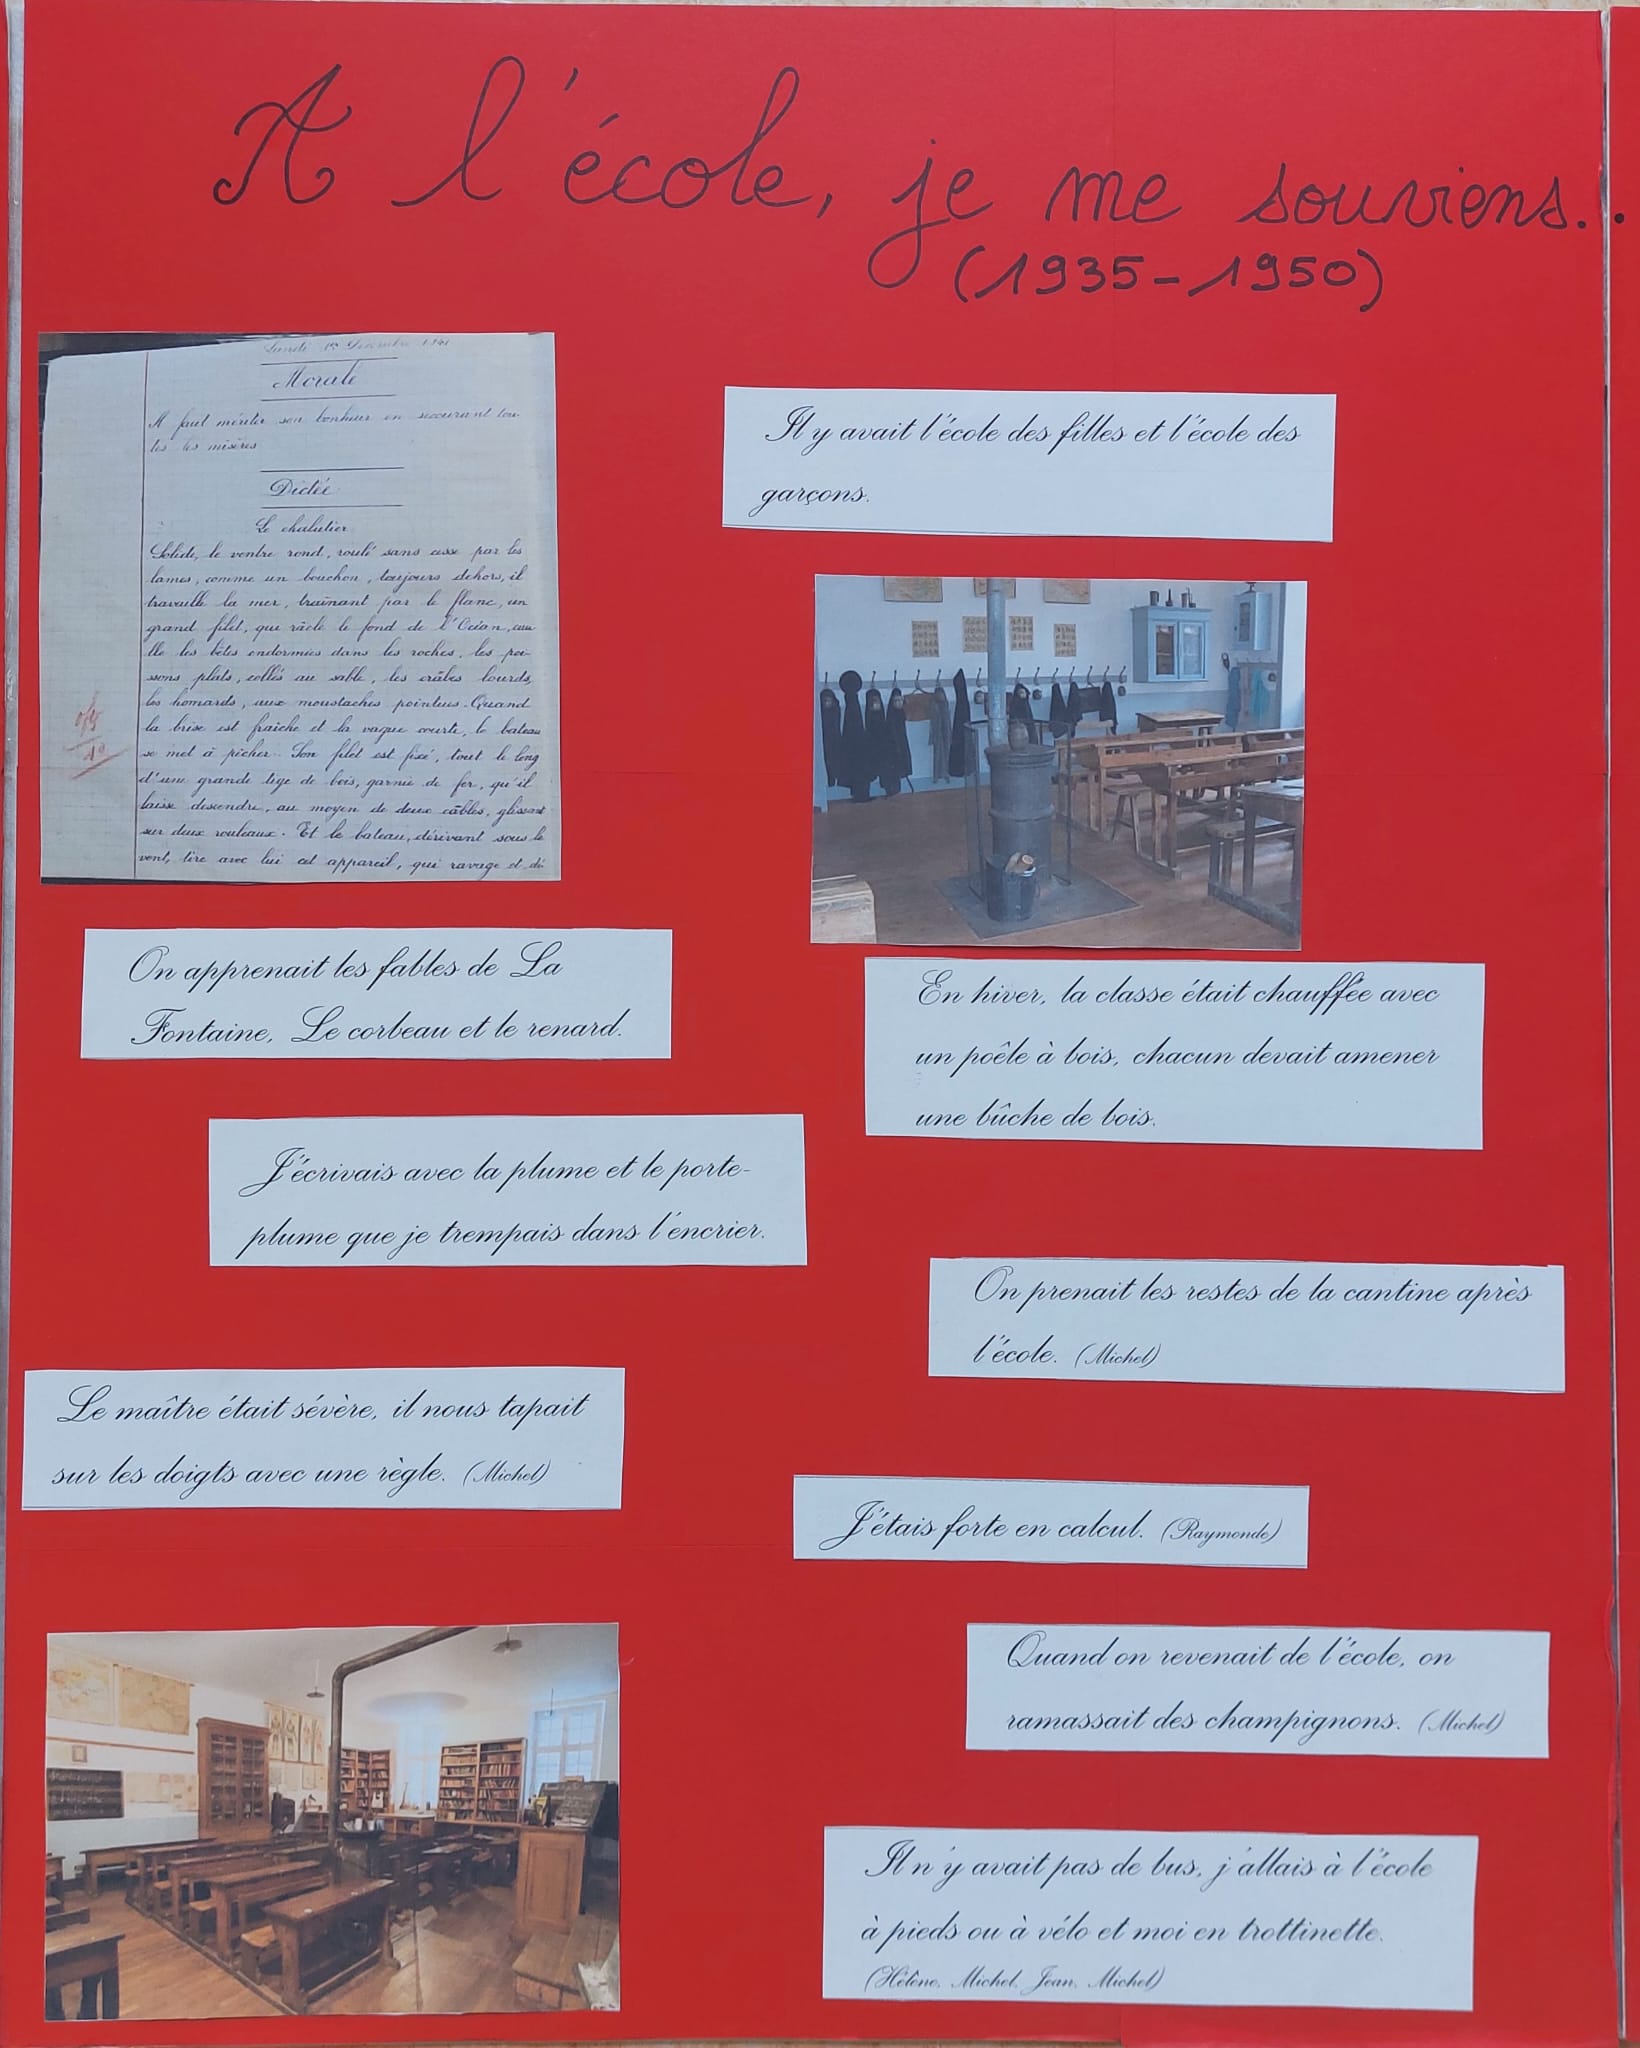 A l'école, je me souviens..
(1935-1950)
Morale
Il faut mériter son bonheur en secourant tou-
tes les misères
Dictée
Le chalutier
Solide, le ventre rond, roulé sans cesse par les
lames, comme un bouchon, toujours dehors, il
travaille la mer, traînant par le flanc, un
grand filet, qui râcle le fond de l'Océan, cueu
lle les bêtes endormies dans les roches, les poi-
ssons plats, collés au sable, les crâbes lourds,
les homards, aux moustaches pointues. Quand
la brise est fraîche et la vague courte, le bateau
se met à pêcher. Son filet est fixé, tout le long
d'une grande tige de bois, garnie de fer, qu'il
laisse descendre, au moyen de deux câbles, glissant
sur deux rouleaux. Et le bateau, dérivant sous le
vent, tire avec lui cet appareil, qui ravage et dé
Il y avait l'école des filles et l'école des
garçons.
On apprenait les fables de La
Fontaine, Le corbeau et le renard.
En hiver, la classe était chauffée avec
un poêle à bois, chacun devait amener
une bûche de bois.
J'écrivais avec la plume et le porte-
plume que je trempais dans l'encrier.
On prenait les restes de la cantine après
l'école. (Michel)
Le maître était sévère, il nous tapait
sur les doigts avec une règle. (Michel)
J'étais forte en calcul. (Raymonde)
Quand on revenait de l'école, on
ramassait des champignons. (Michel)
Il n'y avait pas de bus, j'allais à l'école
à pieds ou à vélo et moi en trottinette.
(Hélène, Michel, Jean, Michel)